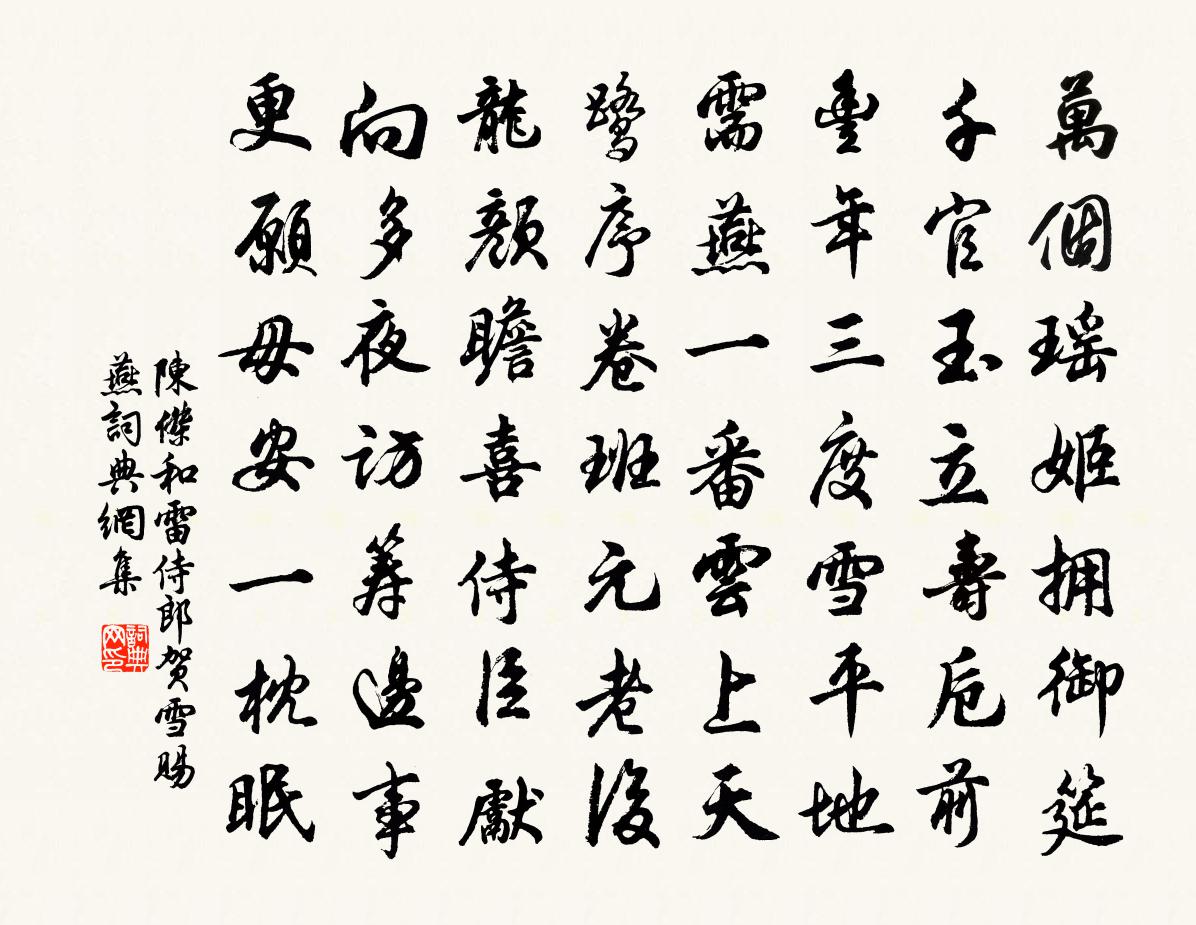 萬個瑶姬拥御筵
千官玉立壽卮前
豊年三度雪平地
需燕一番雲上天
鹭序卷班元老後
龍顏瞻喜侍臣獻
向多夜訪筹邊事
更願毋安一枕眠
陳傑和雷侍郎贺雪賜
燕詞典網集
詞典网印